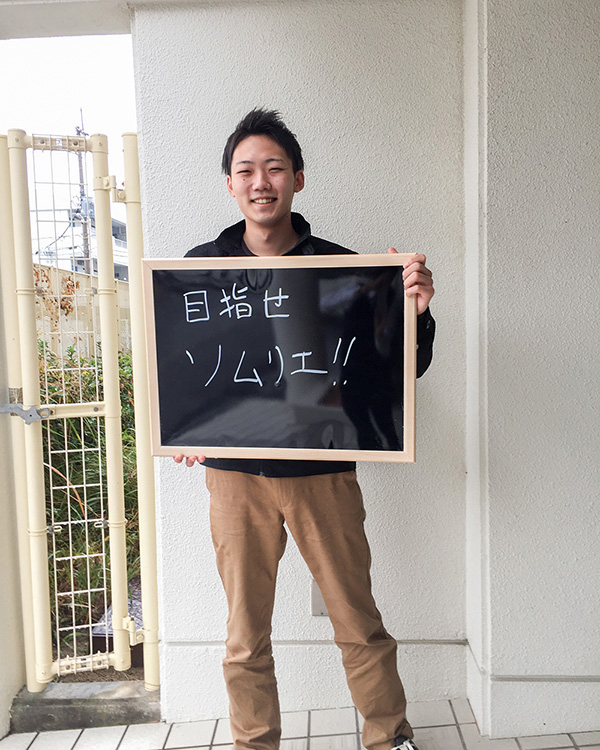 目指せ
ソムリエ!!